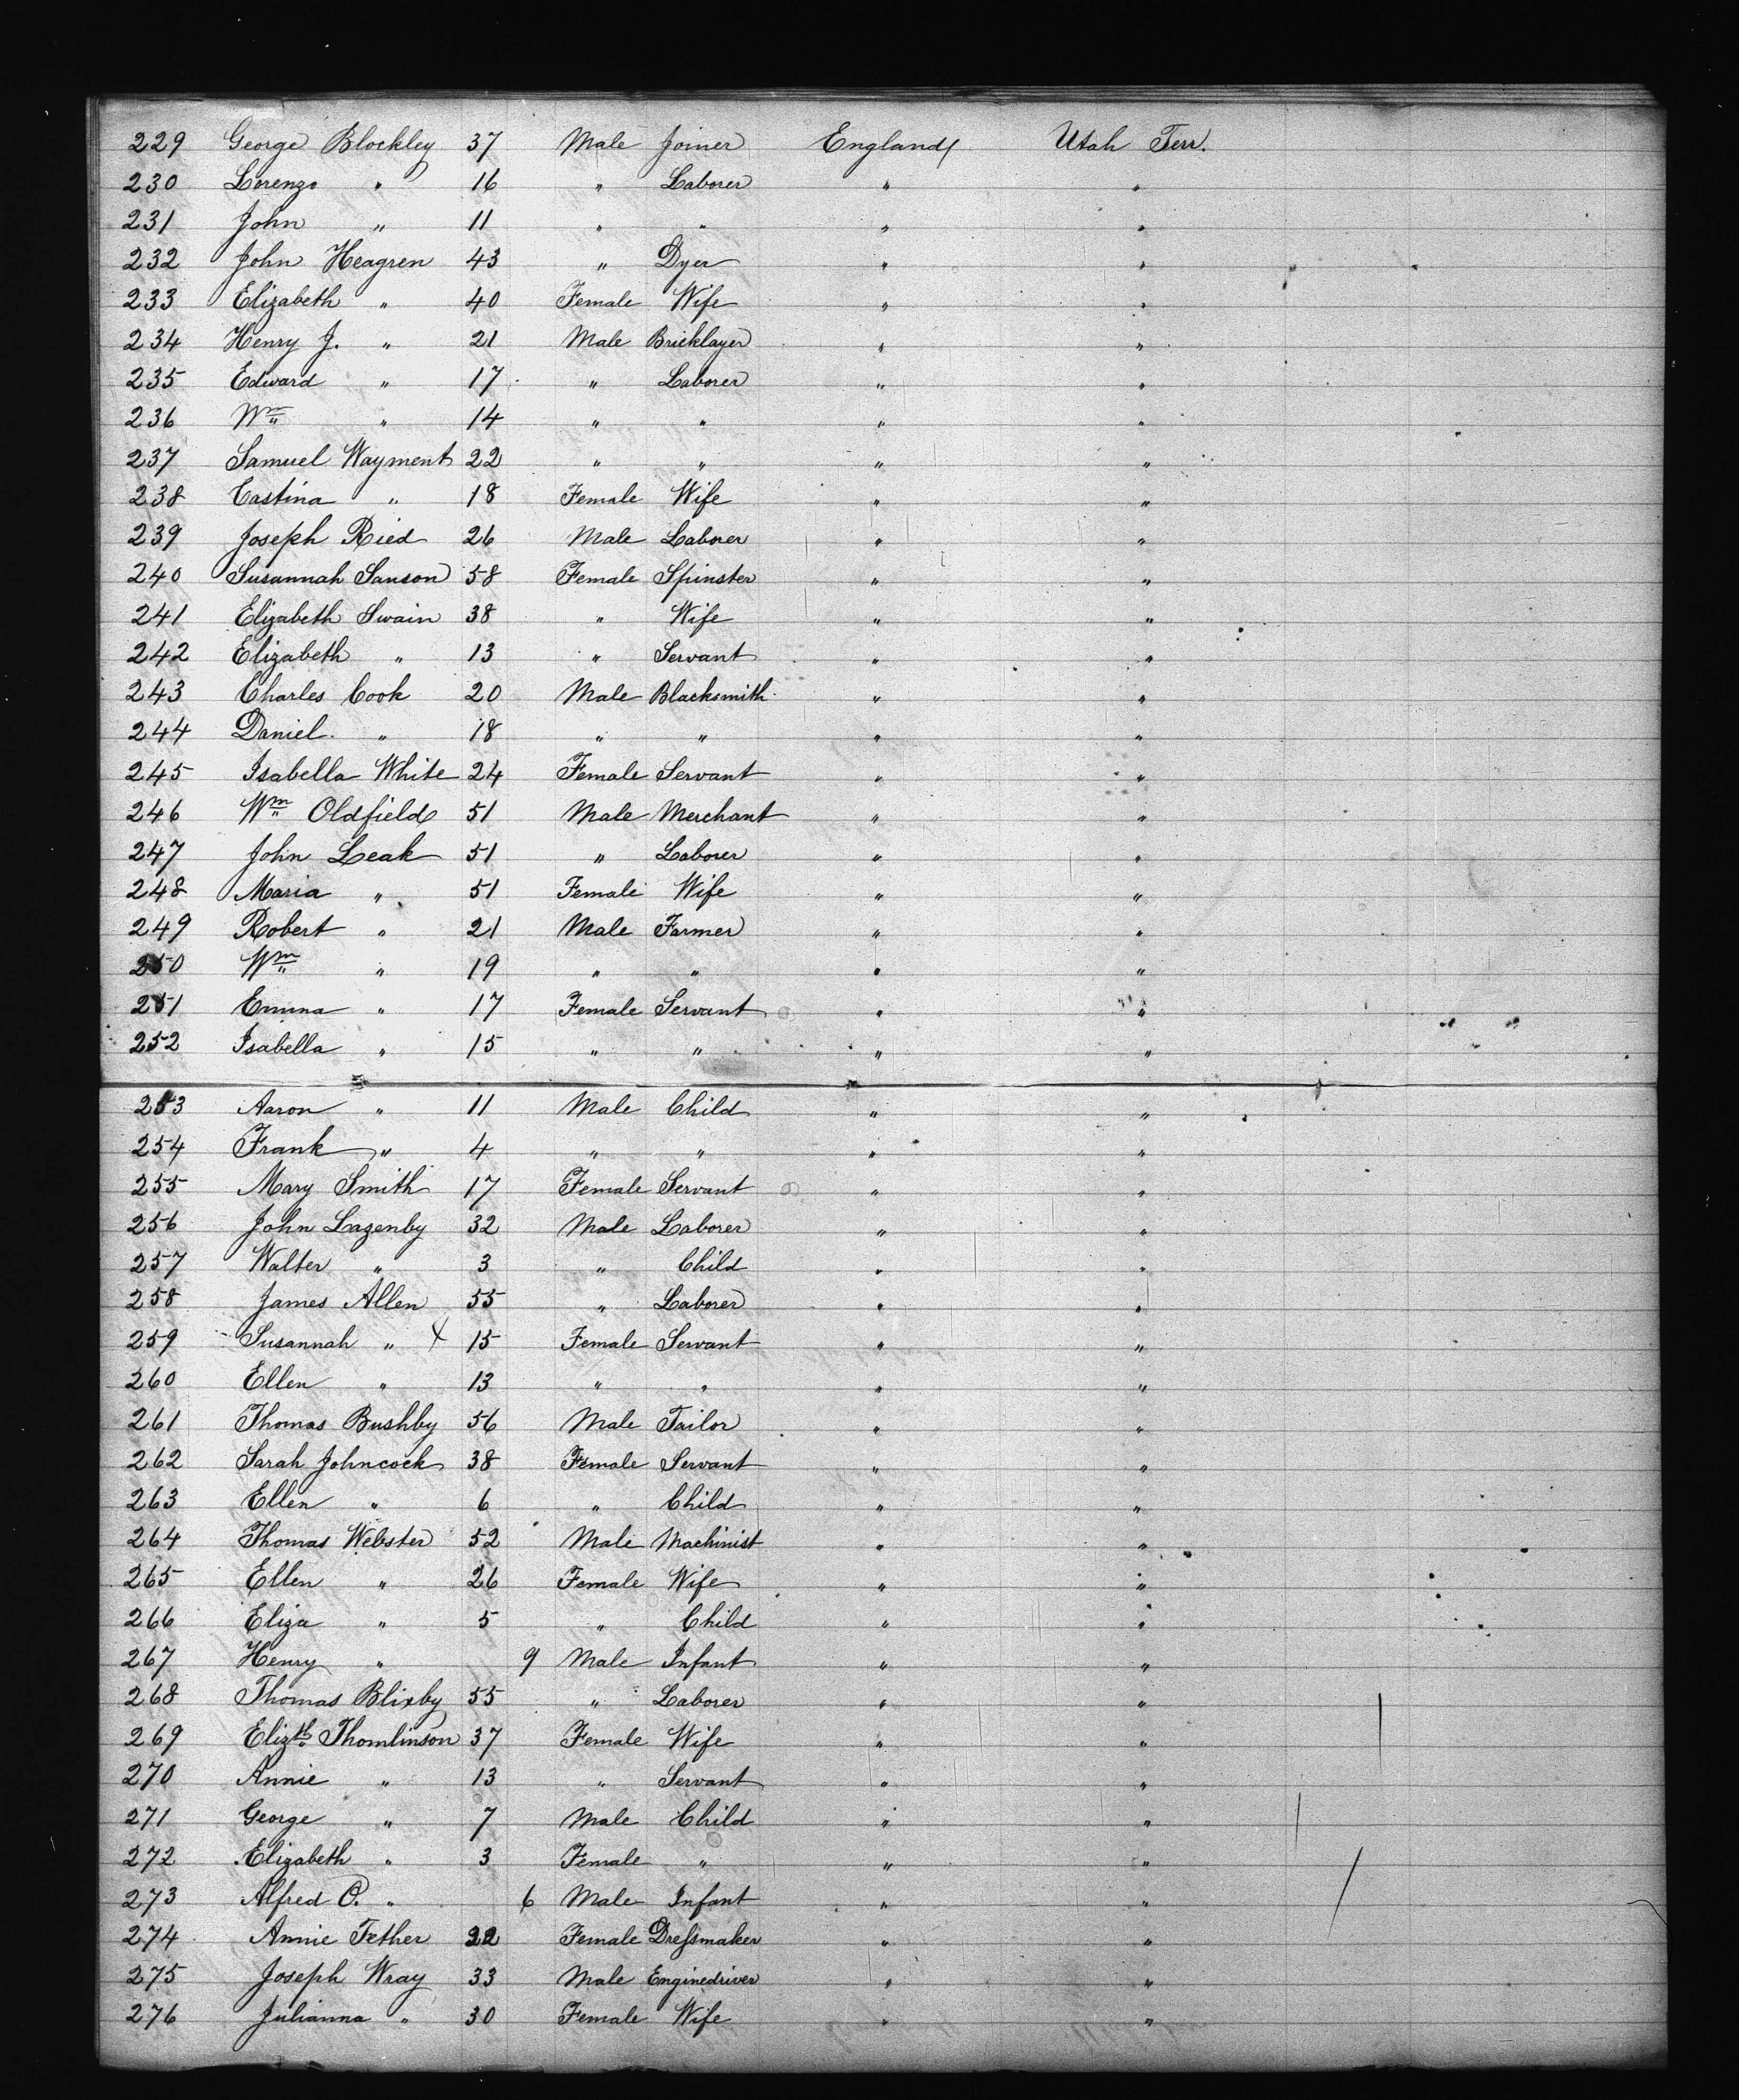 229 George Blockley 37 Male Joiner England Utah Terr.
230 Lorenzo " 16 " Laborer " "
231 John " 11 " " " "
232 John Heagren 43 " Dyer " "
233 Elizabeth " 40 Female Wife " "
234 Henry J. " 21 Male Bricklayer " "
235 Edward " 17 " Laborer " "
236 Wm " 14 " " " "
237 Samuel Wayment 22 " " " "
238 Castina " 18 Female Wife " "
239 Joseph Ried 26 Male Laborer " "
240 Susannah Sanson 58 Female Spinster " "
241 Elizabeth Swain 38 " Wife " "
242 Elizabeth " 13 " Servant " "
243 Charles Cook 20 Male Blacksmith " "
244 Daniel " 18 " " " "
245 Isabella White 24 Female Servant " "
246 Wm Oldfield 51 Male Merchant " "
247 John Leak 51 " Laborer " "
248 Maria " 51 Female Wife " "
249 Robert " 21 Male Farmer " "
250 Wm " 19 " " " "
251 Emma " 17 Female Servant " "
252 Isabella " 15 " " " "
253 Aaron " 11 Male Child " "
254 Frank " 4 " " " "
255 Mary Smith 17 Female Servant " "
256 John Lazenby 32 Male Laborer " "
257 Walter " 3 " Child " "
258 James Allen 55 " Laborer " "
259 Susannah " X 15 Female Servant " "
260 Ellen " 13 " " " "
261 Thomas Bushby 56 Male Tailor " "
262 Sarah Johncock 38 Female Servant " "
263 Ellen " 6 " Child " "
264 Thomas Webster 52 Male Machinist " "
265 Ellen " 26 Female Wife " "
266 Eliza " 5 " Child " "
267 Henry " 9 Male Infant " "
268 Thomas Blixby 55 " Laborer " "
269 Elizth Thomlinson 37 Female Wife " "
270 Annie " 13 " Servant " "
271 George " 7 Male Child " "
272 Elizabeth " 3 Female " " "
273 Alfred O. " 6 Male Infant " "
274 Annie Tether 22 Female Dressmaker " "
275 Joseph Wray 33 Male Enginedriver " "
276 Julianna " 30 Female Wife " "